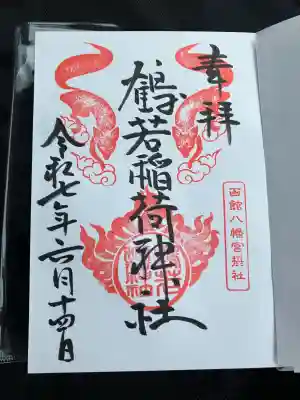 奉拝
函館八幡宮末社
鶴若稲荷神社
令和七年六月十四日